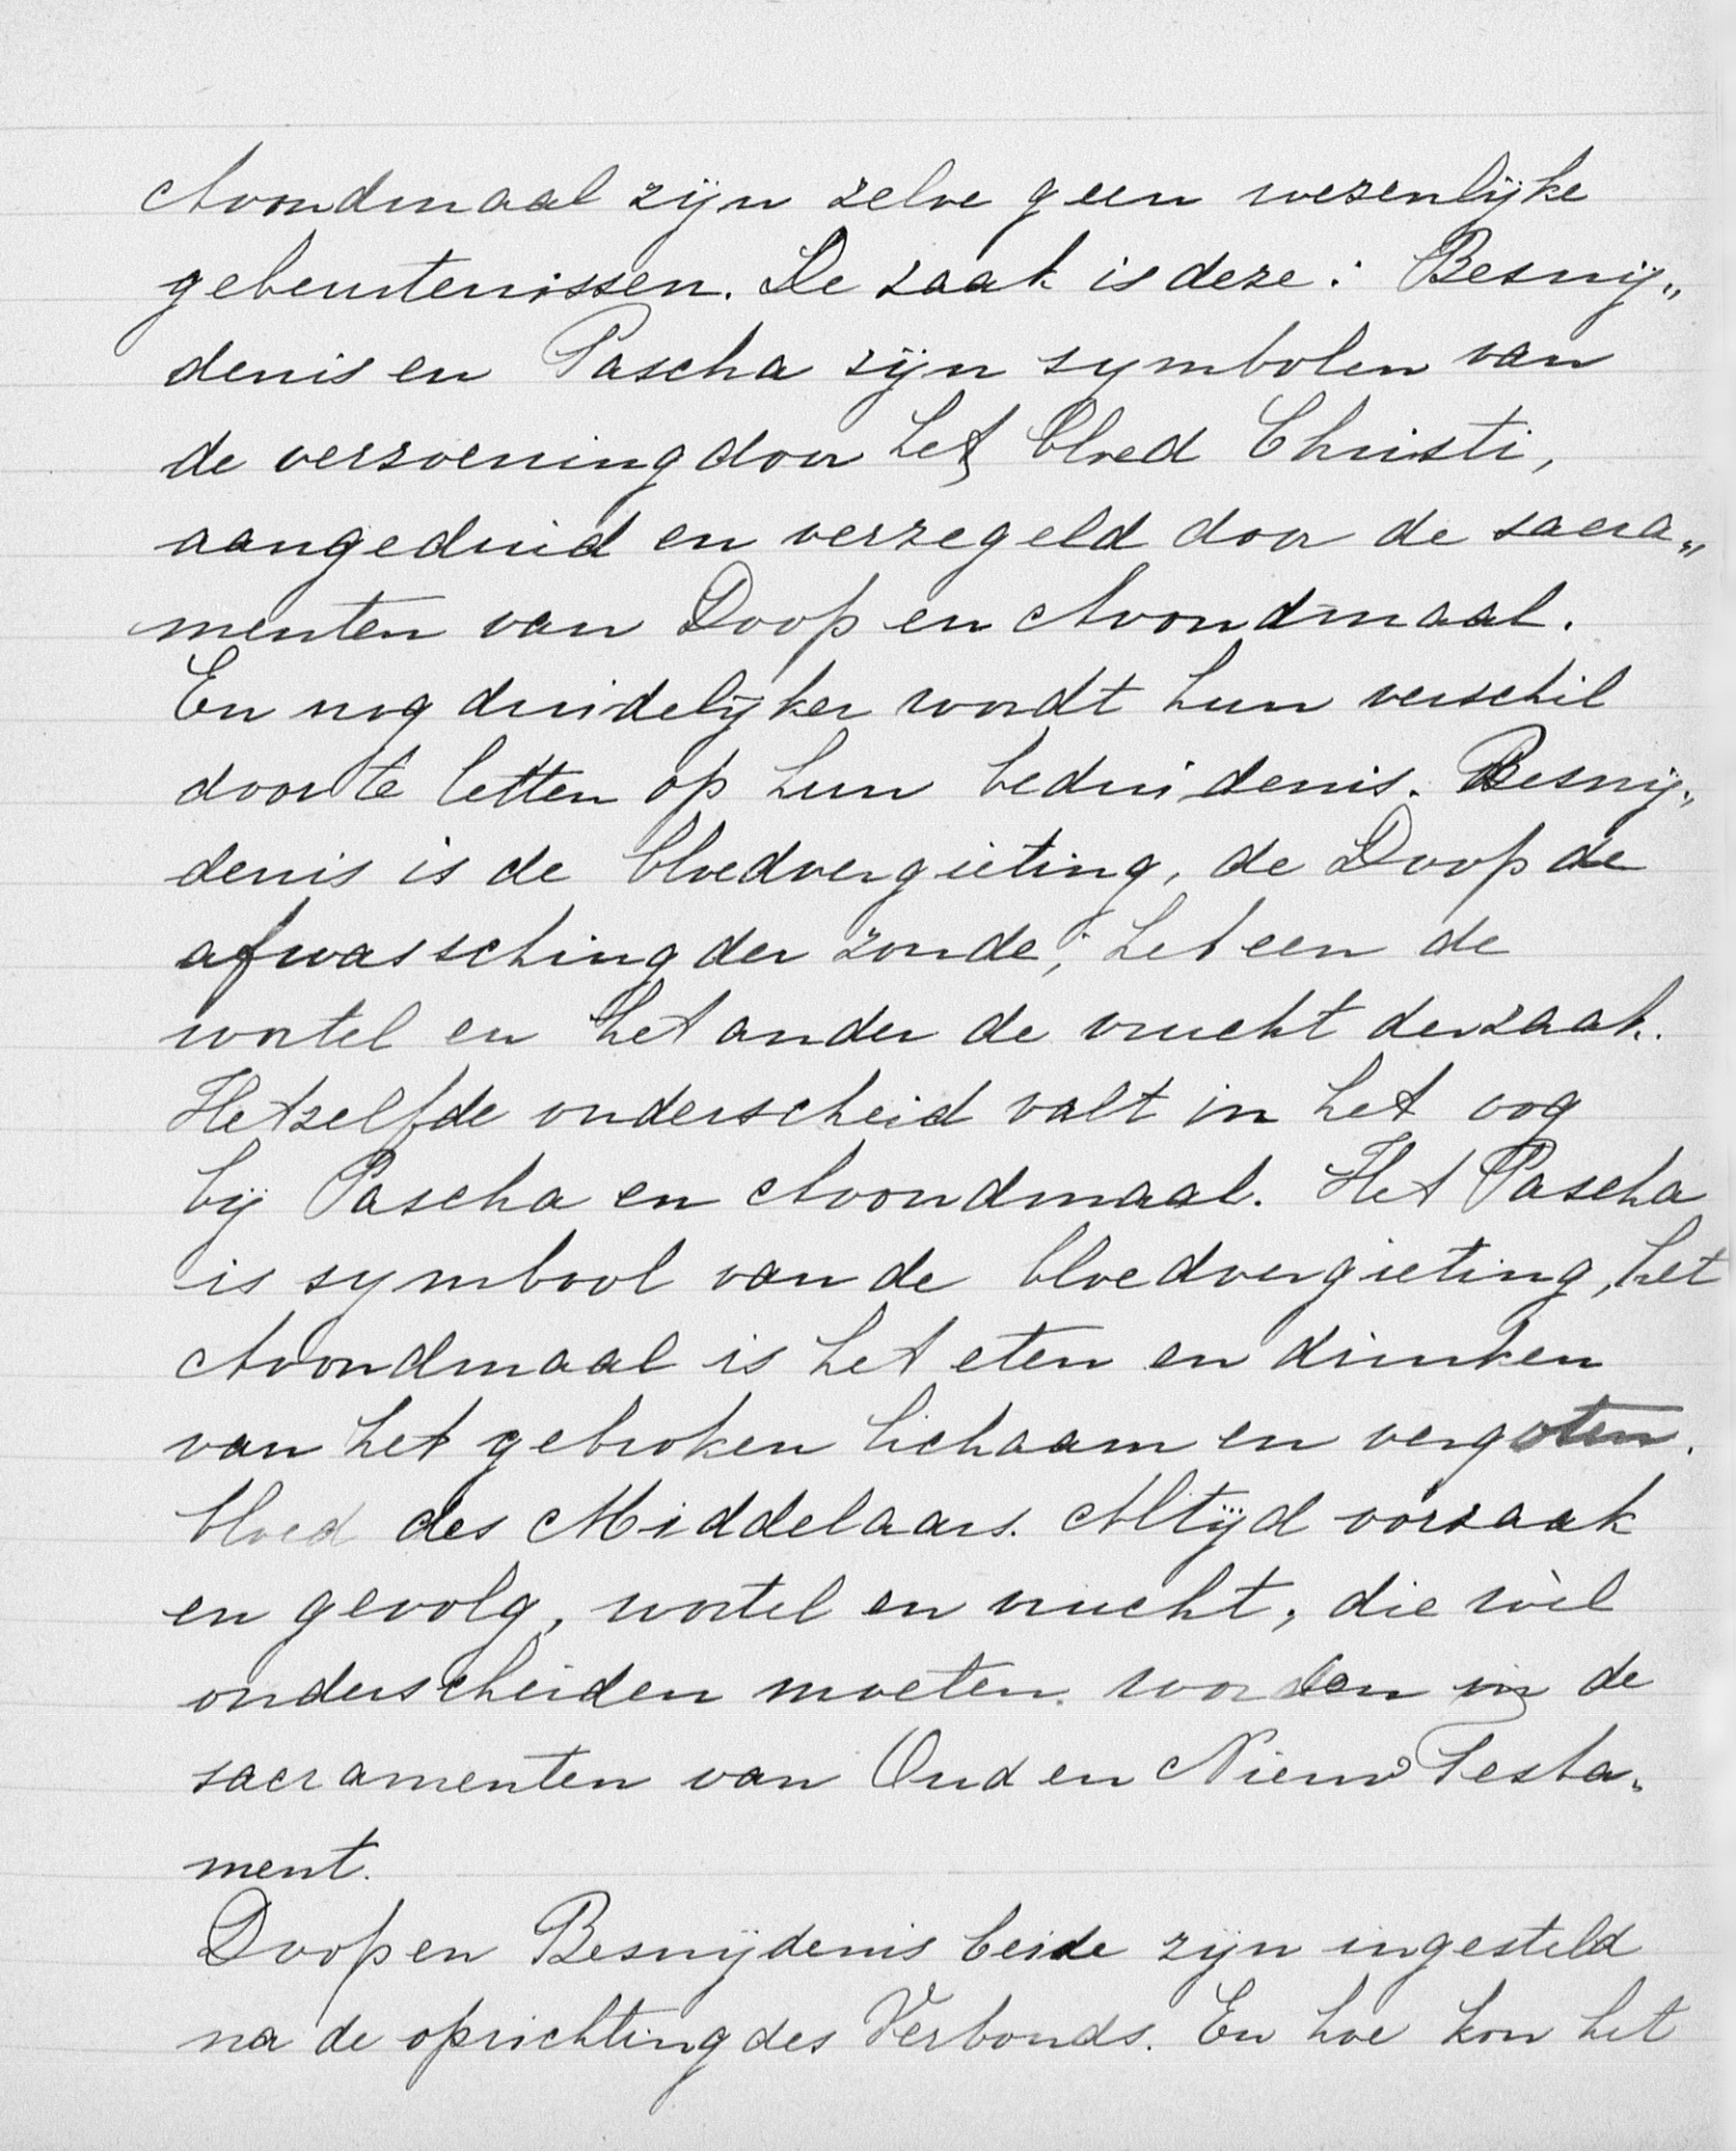 Avondmaal zijn zelve geen wezenlijke
gebeurtenissen. De zaak is deze: Besnij„
denis en Pascha zijn symbolen van
de verzoening door het bloed Christi,
aangeduid en verzegeld door de sacra„
menten van Doop en Avondmaal.
En nog duidelijker wordt hun verschil
door te letten op hun beduidenis. Besnij„
denis is de bloedvergieting, de Doop de
afwassching der zonde; het een de
wortel en het ander de vrucht der zaak.
Hetzelfde onderscheid valt in het oog
bij Pascha en Avondmaal. Het Pascha
is symbool van de bloedvergieting, het
Avondmaal is het eten en drinken
van het gebroken lichaam en vergoten
bloed des Middelaars. Altijd oorzaak
en gevolg, wortel en vrucht, die wèl
onderscheiden moeten worden in de
sacramenten van Oud en Nieuw Testa„
ment.
Doop en Besnijdenis beide zijn ingesteld
na de oprichting des Verbonds. En hoe kon het